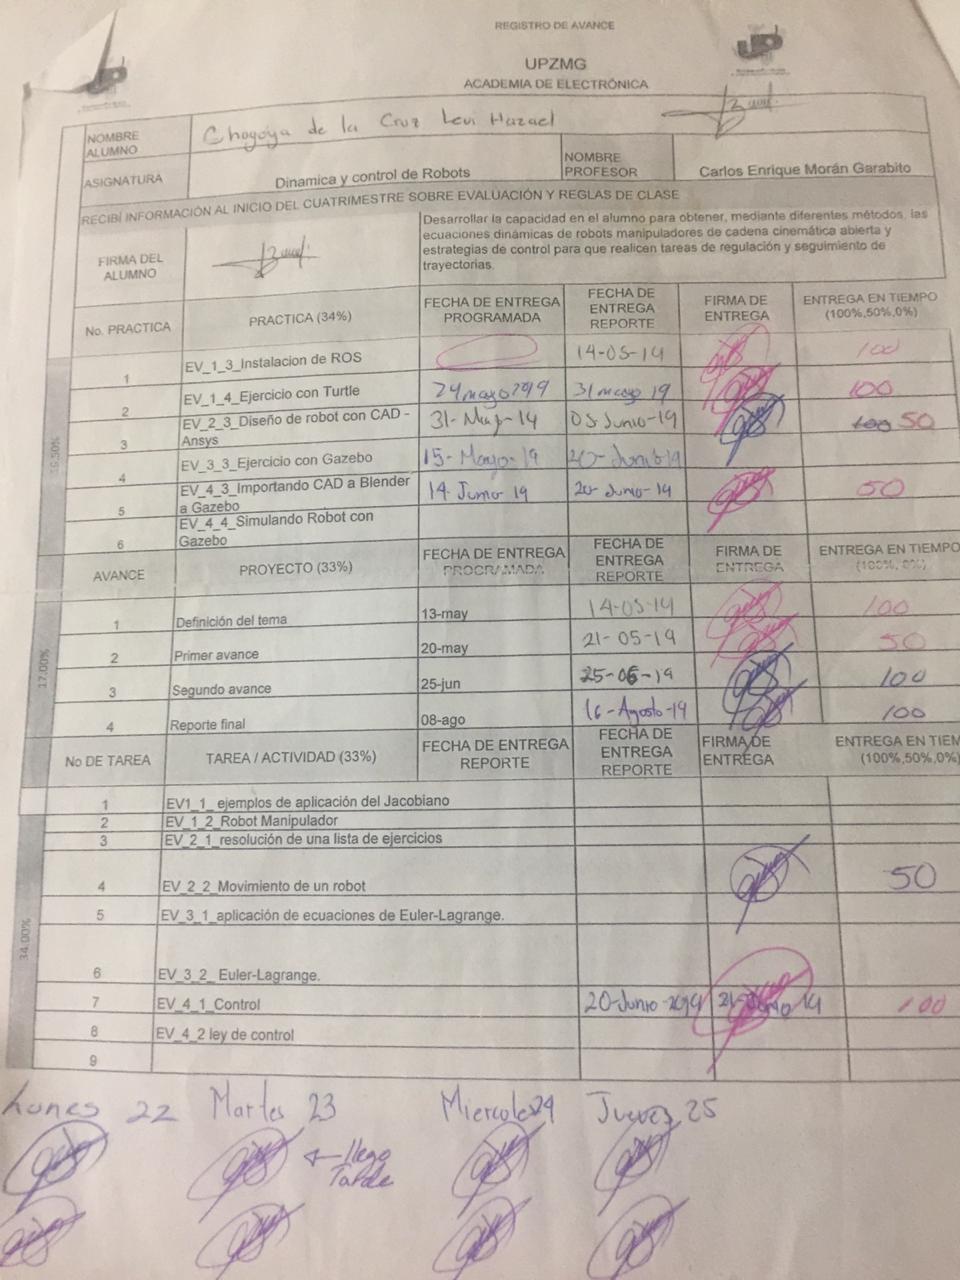 REGISTRO DE AVANCE
UPZMG
ACADEMIA DE ELECTRÓNICA
NOMBRE ALUMNO Chogoya de la Cruz Levi Hazael
ASIGNATURA Dinamica y control de Robots NOMBRE PROFESOR Carlos Enrique Morán Garabito
RECIBÍ INFORMACIÓN AL INICIO DEL CUATRIMESTRE SOBRE EVALUACIÓN Y REGLAS DE CLASE
FIRMA DEL ALUMNO
Desarrollar la capacidad en el alumno para obtener, mediante diferentes métodos, las
ecuaciones dinámicas de robots manipuladores de cadena cinemática abierta y
estrategias de control para que realicen tareas de regulación y seguimiento de
trayectorias.
No. PRACTICA PRACTICA (34%) FECHA DE ENTREGA PROGRAMADA FECHA DE ENTREGA REPORTE FIRMA DE ENTREGA ENTREGA EN TIEMPO (100%,50%,0%)
1 EV_1_3_Instalacion de ROS 14-05-19 100
2 EV_1_4_Ejercicio con Turtle 24 mayo 2019 31 mayo 19 100
3 EV_2_3_Diseño de robot con CAD - Ansys 31-May-19 05-Junio-19 100 50
4 EV_3_3_Ejercicio con Gazebo 15-Mayo-19 20-Junio-19
5 EV_4_3_Importando CAD a Blender a Gazebo 14 Junio 19 20-Junio-19 50
6 EV_4_4_Simulando Robot con Gazebo
AVANCE PROYECTO (33%) FECHA DE ENTREGA PROGRAMADA FECHA DE ENTREGA REPORTE FIRMA DE ENTREGA ENTREGA EN TIEMPO (100%, 0%)
17.00%
1 Definición del tema 13-may 14-05-19 100
2 Primer avance 20-may 21-05-19 50
3 Segundo avance 25-jun 25-06-19 100
4 Reporte final 08-ago 16-Agosto-19 100
No DE TAREA TAREA / ACTIVIDAD (33%) FECHA DE ENTREGA REPORTE FECHA DE ENTREGA REPORTE FIRMA DE ENTREGA ENTREGA EN TIEM (100%,50%,0%)
34.00%
1 EV1_1_ ejemplos de aplicación del Jacobiano
2 EV_1_2_Robot Manipulador
3 EV_2_1_resolución de una lista de ejercicios
4 EV_2_2_Movimiento de un robot 50
5 EV_3_1_aplicación de ecuaciones de Euler-Lagrange.
6 EV_3_2_ Euler-Lagrange.
7 EV_4_1_Control 20-Junio-2019 100
8 EV_4_2 ley de control
9
Lunes 22 Martes 23 Miercoles 24 Jueves 25
←llego
Tarde